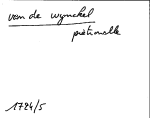 van de wynckel
piétinalle
1724/5